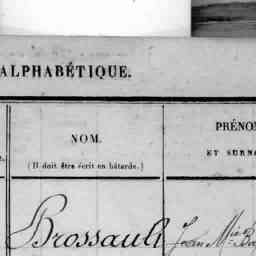 ALPHABÉTIQUE.
NOM.
(Il doit être écrit en bâtarde.)
PRÉNO
ET SURN
Brossault
Jean Mie